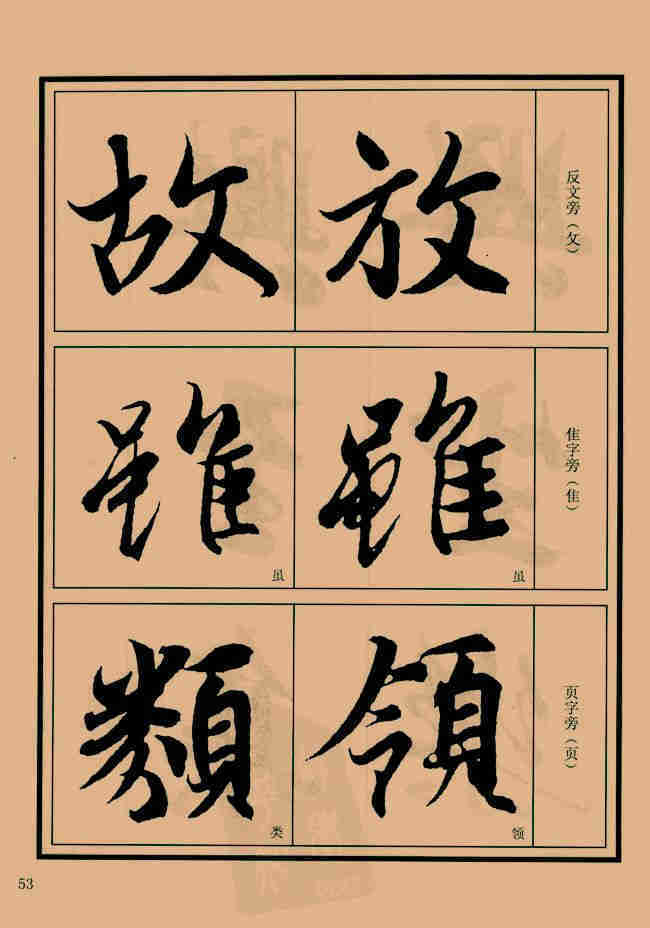 反文旁（攵）
放
故
隹字旁（隹）
雖
虽
雖
虽
页字旁（页）
領
领
類
类
53